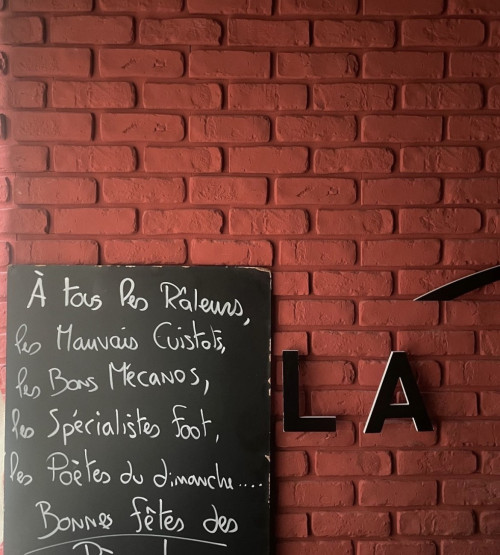 À tous les Râleurs,
les Mauvais Cuistots,
les Bons Mécanos,
les Spécialistes foot,
les Poètes du dimanche....
Bonnes fêtes des
LA